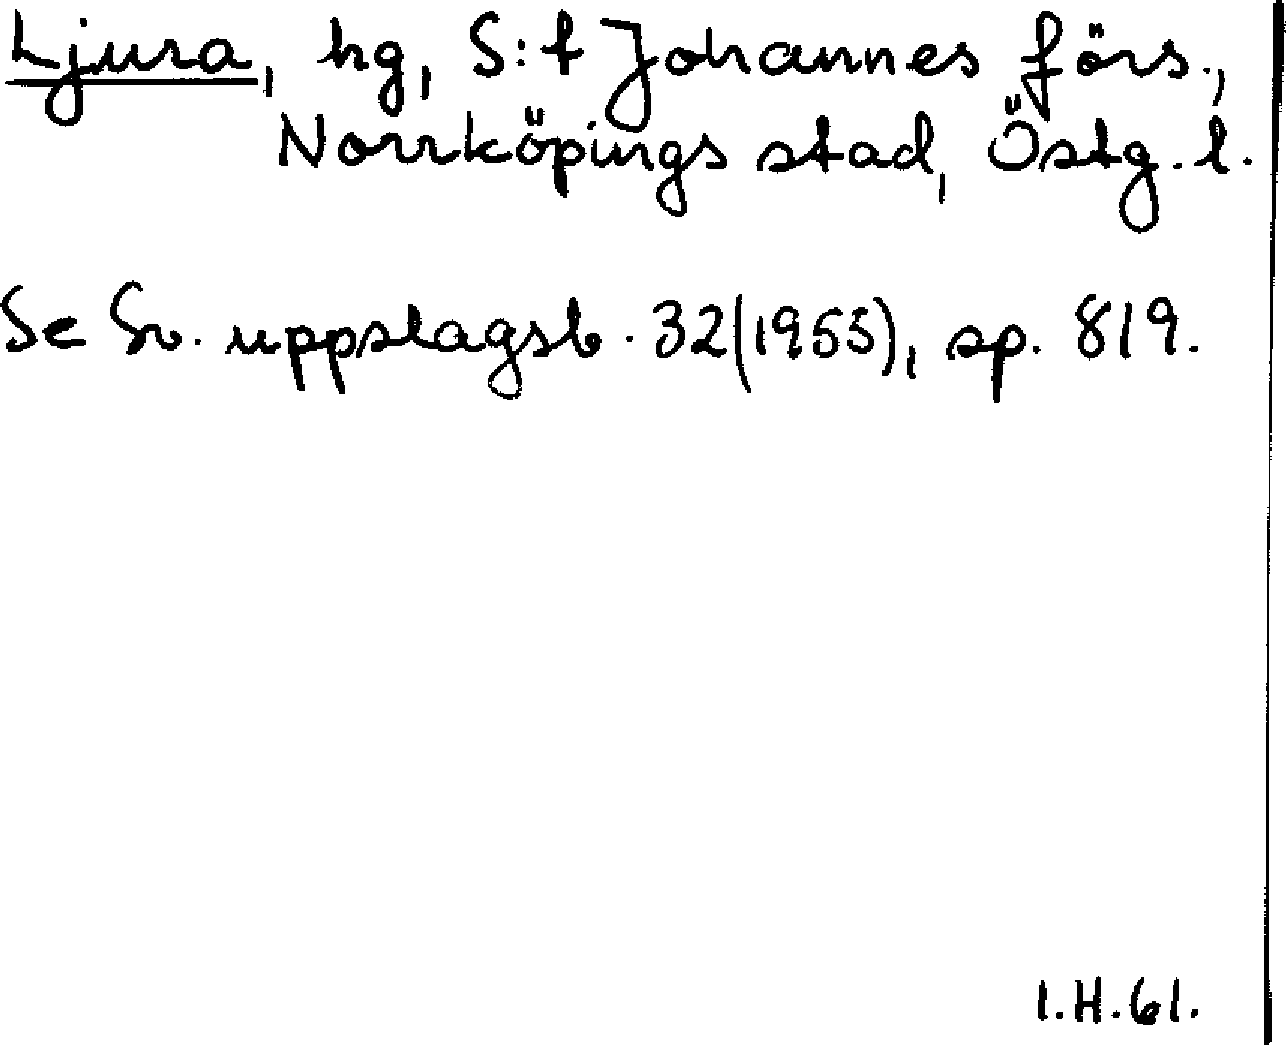 Ljura, hg, S:t Johannes förs.,
Norrköpings stad, Östg. l.
Se Sv. uppslagsb. 32 (1955), sp. 819.
I.H.61.